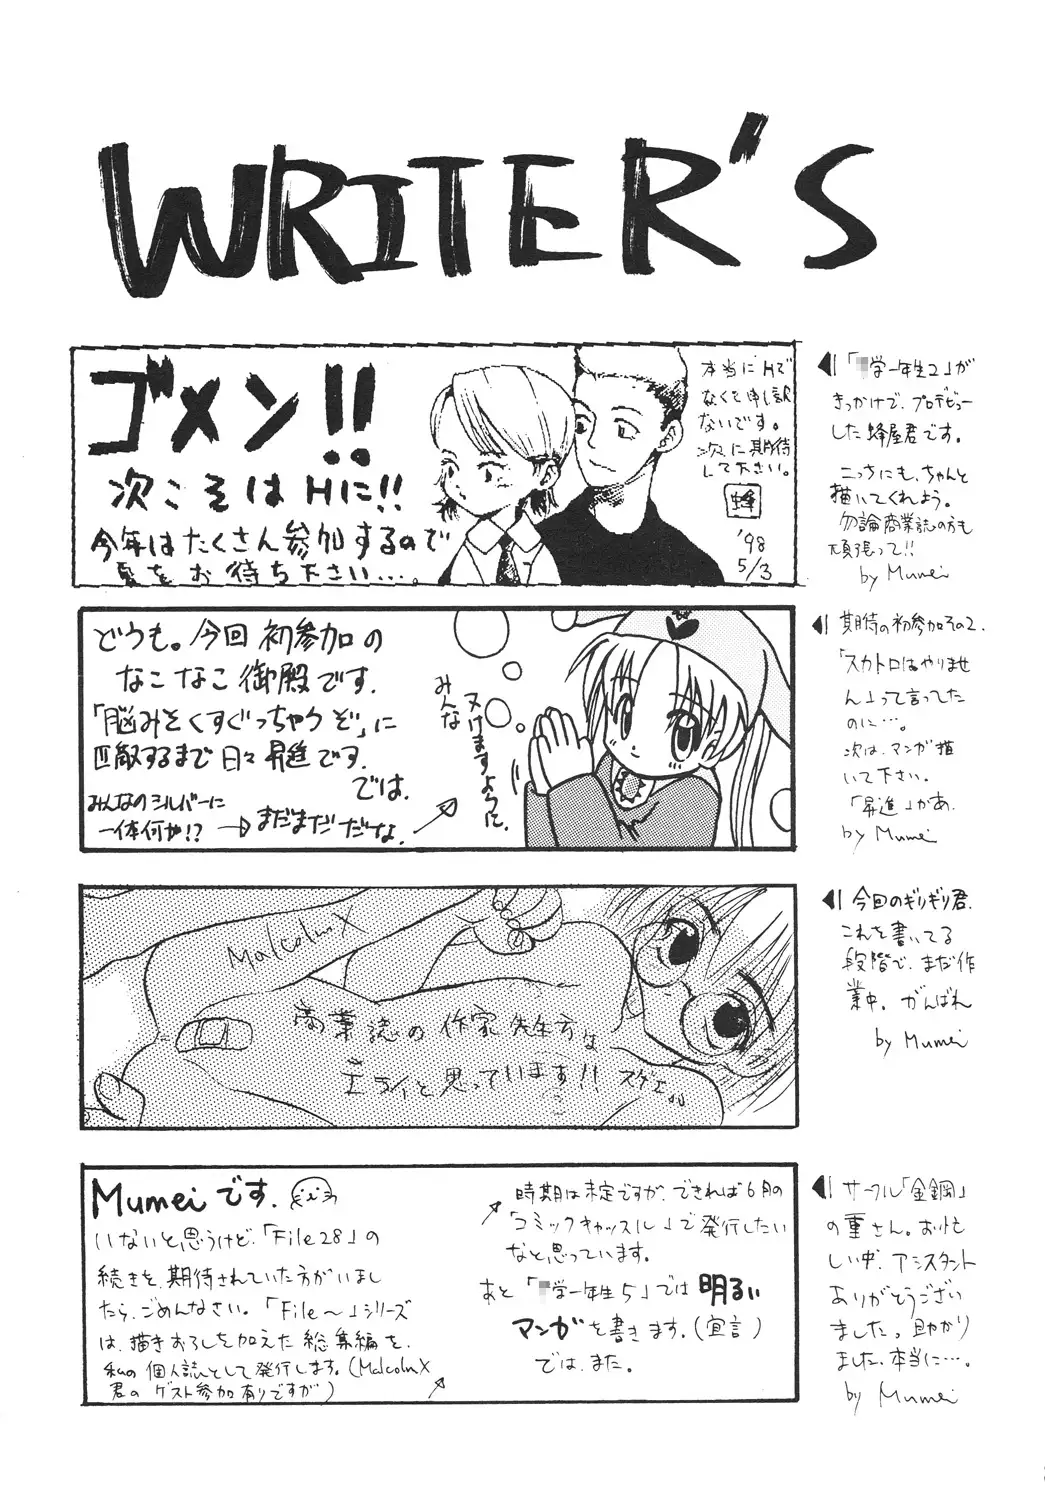 WRITER'S
ゴメン!!
次こそはHに!!
今年はたくさん参加するので
夏をお待ち下さい…。
本当にHで
なくて申し訳
ないです。
次に期待
して下さい。
蜂
'98
5/3
学一年生2」が
きっかけで、プロデビュー
した蜂屋君です。
こっちにも、ちゃんと
描いてくれよう。
勿論商業誌の方も
頑張って!!
by Mumei
どうも。今回初参加の
なこなこ御殿です。
「脳みそくすぐっちゃうぞ」に
匹敵するまで日々昇進です。
では。
みんなのシルバーに
一体何が!?
→まだまだだな。
みんな
ヌけますように。
期待の初参加その2.
「スカトロはやりませ
ん」って言ってた
のに…。
次は、マンガ描
いて下さい。
「昇進」かあ.
by Mumei
Malcolm X
商業誌の作家先生方は
エライと思っています!!スゲェ。
今回のギリギリ君.
これを書いてる
段階で、まだ作
業中。がんばれ
by Mumei
Mumeiです.
いないと思うけど、「File28」の
続きを、期待されていた方がいまし
たら、ごめんなさい。「File～」シリーズ
は、描きおろしを加えた総集編を、
私の個人誌として発行します。(MalcolmX
君のゲスト参加有りですが)
時期は未定ですが、できれば6月の
「コミックキャッスル」で発行したい
なと思っています。
あと「学一年生5」では明るい
マンガを書きます。(宣言)
では、また。
サークル「金鋼」
の重さん。お忙
しい中、アシスタント
ありがとうござい
ました。助かり
ました、本当に…。
by Mumei